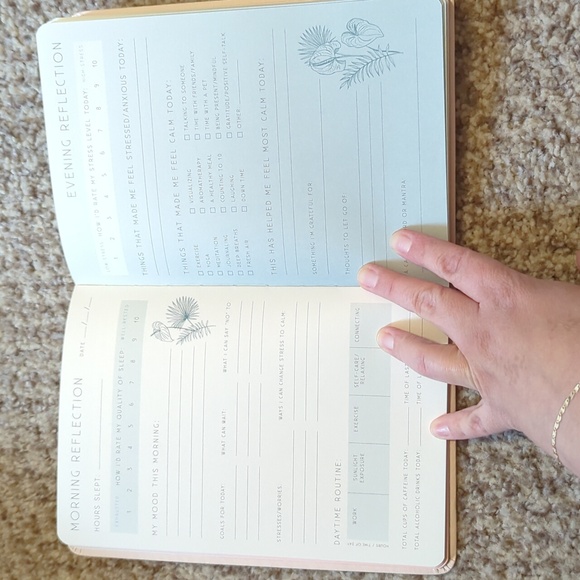 MORNING REFLECTION
DATE: __/__/__
HOURS SLEPT:
HOW I'D RATE MY QUALITY OF SLEEP
1 2 3 4 5 6 7 8 9 10
MY MOOD THIS MORNING:
GOALS FOR TODAY: WHAT CAN WAIT: WHAT I CAN SAY "NO" TO:
STRESSES/WORRIES: WAYS I CAN CHANGE STRESS TO CALM:
DAYTIME ROUTINE:
WORK SUNLIGHT EXPOSURE EXERCISE SELF-CARE/RELAXING CONNECTING
TOTAL CUPS OF CAFFEINE TODAY: TIME OF LAS
TOTAL ALCOHOLIC DRINKS TODAY: TIME OF
EVENING REFLECTION
HOW I'D RATE MY STRESS LEVEL TODAY HIGH STRESS
1 2 3 4 5 6 7 8 9 10
THINGS THAT MADE ME FEEL STRESSED/ANXIOUS TODAY:
THINGS THAT MADE ME FEEL CALM TODAY:
EXERCISE VISUALIZING TALKING TO SOMEONE
YOGA AROMATHERAPY TIME WITH FRIENDS/FAMILY
MEDITATION A HEALTHY MEAL TIME WITH A PET
JOURNALING COUNTING TO 10 BEING PRESENT/MINDFUL
DEEP BREATHS LAUGHING GRATITUDE/POSITIVE SELF-TALK
FRESH AIR DOWN TIME OTHER:
THIS HAS HELPED ME FEEL MOST CALM TODAY:
SOMETHING I'M GRATEFUL FOR:
THOUGHTS TO LET GO OF:
RD OR MANTRA